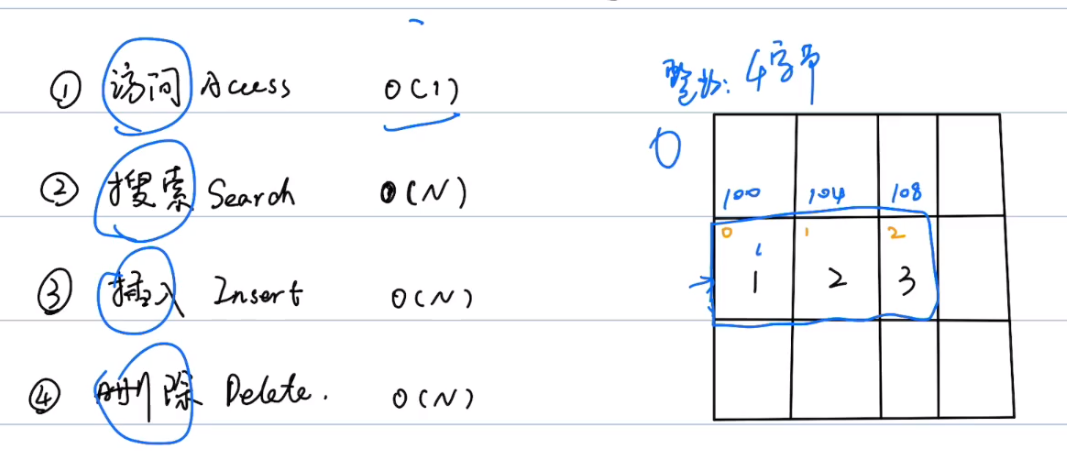 ① 访问 Access O(1)
② 搜索 Search O(N)
③ 插入 Insert O(N)
④ 删除 Delete. O(N)
整数: 4字节
0
100 104 108
0 1 2
1 2 3